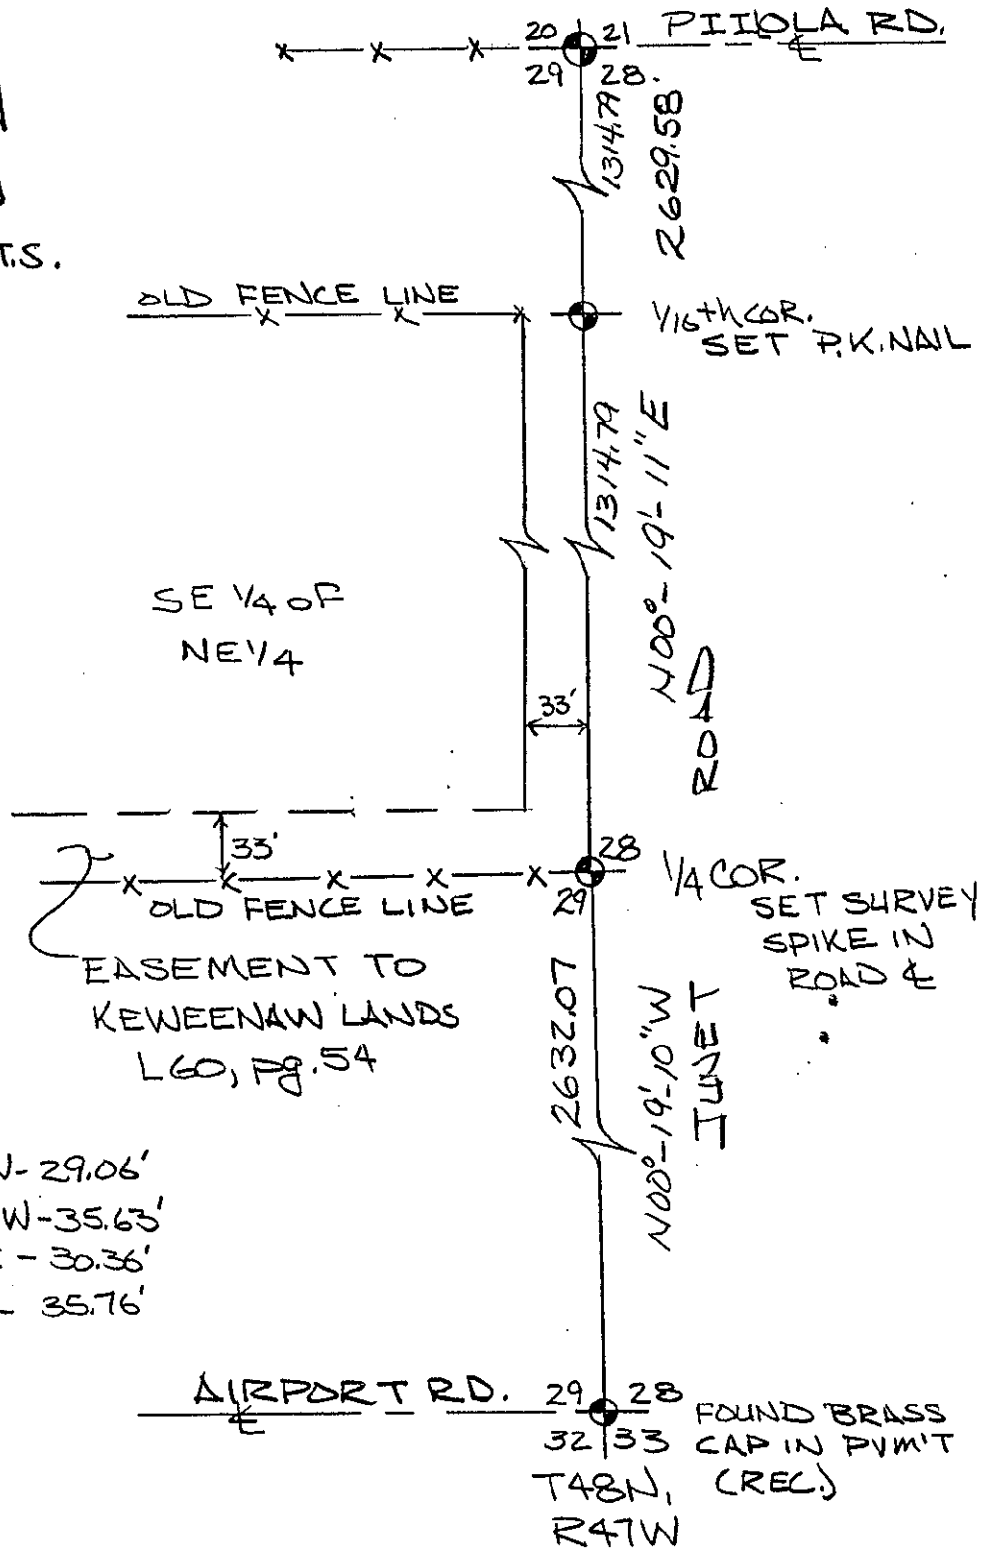 PIIOLA RD.
20 21
29 28
1314.79
2629.58
T.S.
OLD FENCE LINE
1/16th COR.
SET P.K. NAIL
1314.79
N00°-19'-11"E
SE 1/4 OF
NE 1/4
33'
ROAD
33'
28
29
1/4 COR.
SET SURVEY
SPIKE IN
ROAD ℄
OLD FENCE LINE
EASEMENT TO
KEWEENAW LANDS
L60, pg. 54
2632.07
N00°-19'-10"W
JUNET
- 29.06'
W-35.63'
- 30.36'
- 35.76'
AIRPORT RD.
29 28
32 33
FOUND BRASS
CAP IN PVM'T
(REC.)
T48N,
R47W